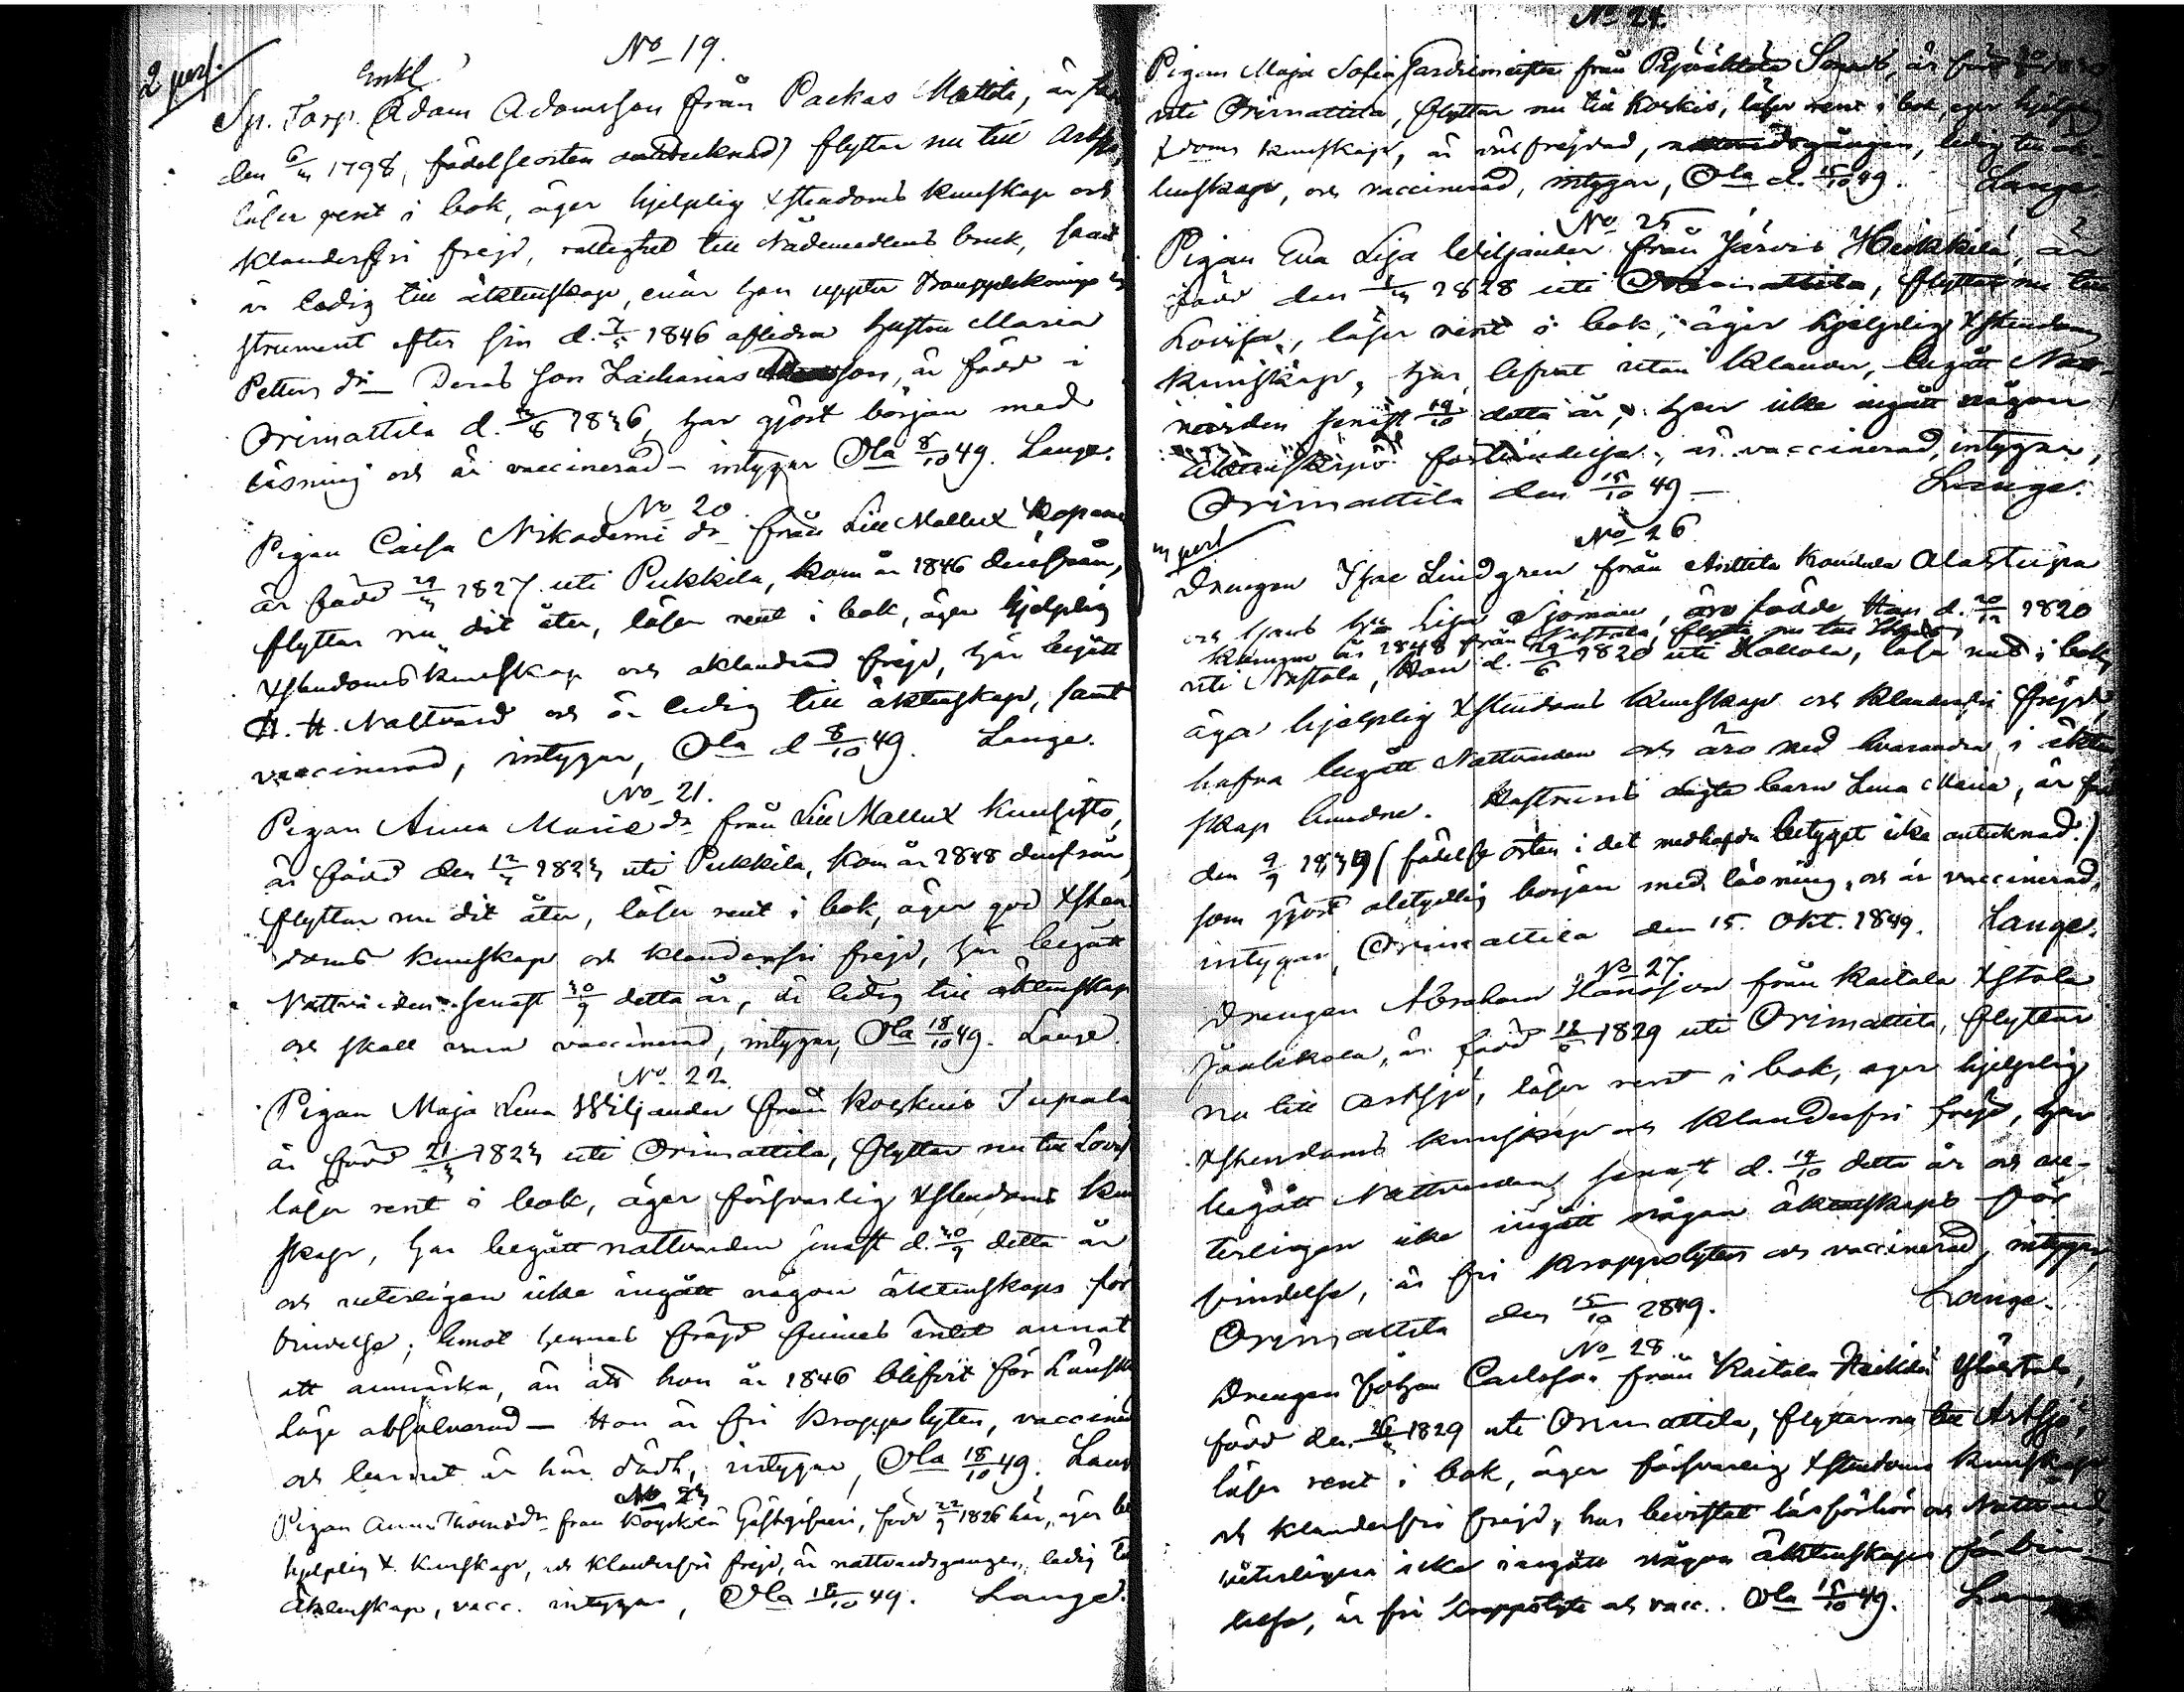 2 pers.
No 19.
Enkl.
Sp. Torp. Adam Adamsson från Packas Mattila, är
den 1798, födelseorten flyttar nu till Artsjö
läser rent i bok, äger hjelplig Xstendoms kunskap och
klanderfri frejd, rättighet till Nådemedlens bruk, samt
är ledig till äktenskap, enär han uppter Bouppteknings in
strument efter sin d. 1846 aflidna hustru Maria
Petters dr – Deras son Zacharias är född i
Orimattila d. 1836, har gjort början med
läsning och är vaccinerad – intygar Ola 8/10 49. Lange.
No 20.
Pigan Caisa Nikodemi dr från Lill Mallux
är född 29/3 1827 uti Pukkila, kom år 1846 därifrån,
flyttar nu dit åter, läser rent i bok, äger hjelplig
Xstendoms kunskap och oklandrad frejd, har begått
H. H. Nattvard och är ledig till äktenskap, samt
vaccinerad, intygar, Ola d 8/10 49. Lange.
No 21.
Pigan Anna Maria dr från Lill Mallux Kuusisto,
är född den 1823 uti Pukkila, kom år 1848 därifrån,
flyttar nu dit åter, läser rent i bok, äger god Xsten
doms kunskap och klanderfri frejd, har begått
Nattvarden senast 30/9 detta år, är ledig till äktenskap
och skall vara vaccinerad, intygar, Ola 18/10 49. Lange.
No 22.
Pigan Maja Lena Wiljander från Koskuis Tupala
är född 21/3 1823 uti Orimattila, flyttar nu till Lovis
läser rent i bok, äger försvarlig Xstendoms kun
skap, har begått nattvarden senast d. 30/9 detta år
och veterligen icke ingått någon äktenskaps för
bindelse; emot hennes frejd finnes intet annat
att anmärka, än att hon år 1846 blifvit för Lönska
läge absolverad – Hon är fri kroppslyten, vaccine
och barnet är här dödt, intygar, Ola 18/10 49. Lange
No 23
Pigan Anna Thomæ dr från Koyskylä Gästgifveri, född 22/9 1826 här, äger
hjelplig X. kunskap, och klanderfri frejd, är nattvardsgången, ledig till
äktenskap, vacc. intygar, Ola 18/10 49. Lange.
No 24.
Pigan Maja Sofia från Sonnis, är född
uti Orimattila, flyttar nu till Koskis, läser rent i bok, eger hjelplig
Xdoms kunskap, är välfrejdad, nattvardsgången, ledig till äk-
tenskap, och vaccinerad, intygar, Ola d. 15/10 49. Lange.
No 25
Pigan Eva Lisa Wiljander från Järvis Heikkilä, är
född den 1828 uti Orimattila, flyttar nu till
Lovisa, läser rent i bok, äger hjelplig Xstendoms
kunskap, har lefvat utan klander, begått Natt-
varden senast 14/10 detta år, har icke ingått någon
äktenskaps förbindelse, är vaccinerad, intygar,
Orimattila den 15/10 49. – Lange.
No 26.
pers.
Drengen Isac Lindgren från Mattila Alastupa
och hans hu Lisa Sjöman, äro födde, Han d. 20/12 1820
komne år 1848 från Nastola, flytta nu till
uti Nastola, Hon d. 29/6 1820 uti Hollola, läsa rent i bok,
äga hjelplig Xstendoms kunskap och klanderfri frejd,
hafva begått Nattvarden och äro med hvarandra i äkten
skap bundne. Hustruns ägta barn Lena Maria, är född
den 9/9 1839 (födelse orten i det medhafda betyget icke antecknad.)
som gjort obetydlig början med läsning, och är vaccinerad,
intygar, Orimattila den 15. Okt. 1849. Lange.
No 27.
Drengen Abraham Hansson från Kaitala Xstola
är född 1829 uti Orimattila, flyttar
nu till Artsjö, läser rent i bok, eger hjelplig
Xstendoms kunskap och klanderfri frejd, har
begått Nattvarden senast d. 14/10 detta år och ve-
terligen icke ingått någon äktenskaps för
bindelse, är fri kroppslyten och vaccinerad, intygar,
Orimattila den 15/10 1849. Lange.
No 28.
Drengen Johan Carlsson från Kaitala Heikkilä
född den 1829 uti Orimattila, flyttar nu till Artsjö,
läser rent i bok, äger försvarlig Xstendoms kunskap
och klanderfri frejd, har bevistat läsförhör och Nattvard,
veterligen icke ingått någon äktenskaps förbin-
delse, är fri kroppslyte och vacc. Ola 15/10 49.